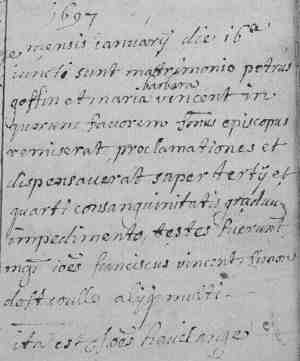 1697
mensis januarij die 16a
iuncti sunt matrimonio petrus
goffin et maria barbara vincent in
quorum favorem Illmus episcopus
remiserat proclamationes et
dispensaverat super tertij et
quarti consanguinitatis graduu
impedimento, testes fuerunt
mgr joes franciscus vincent
alijq multi.
ita est joes havelange